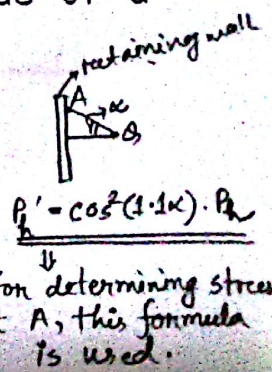 retaining wall
A
α
Q
P'h = cos²(1.1α). Ph
⇓
for determining stress
A, this formula
is used.